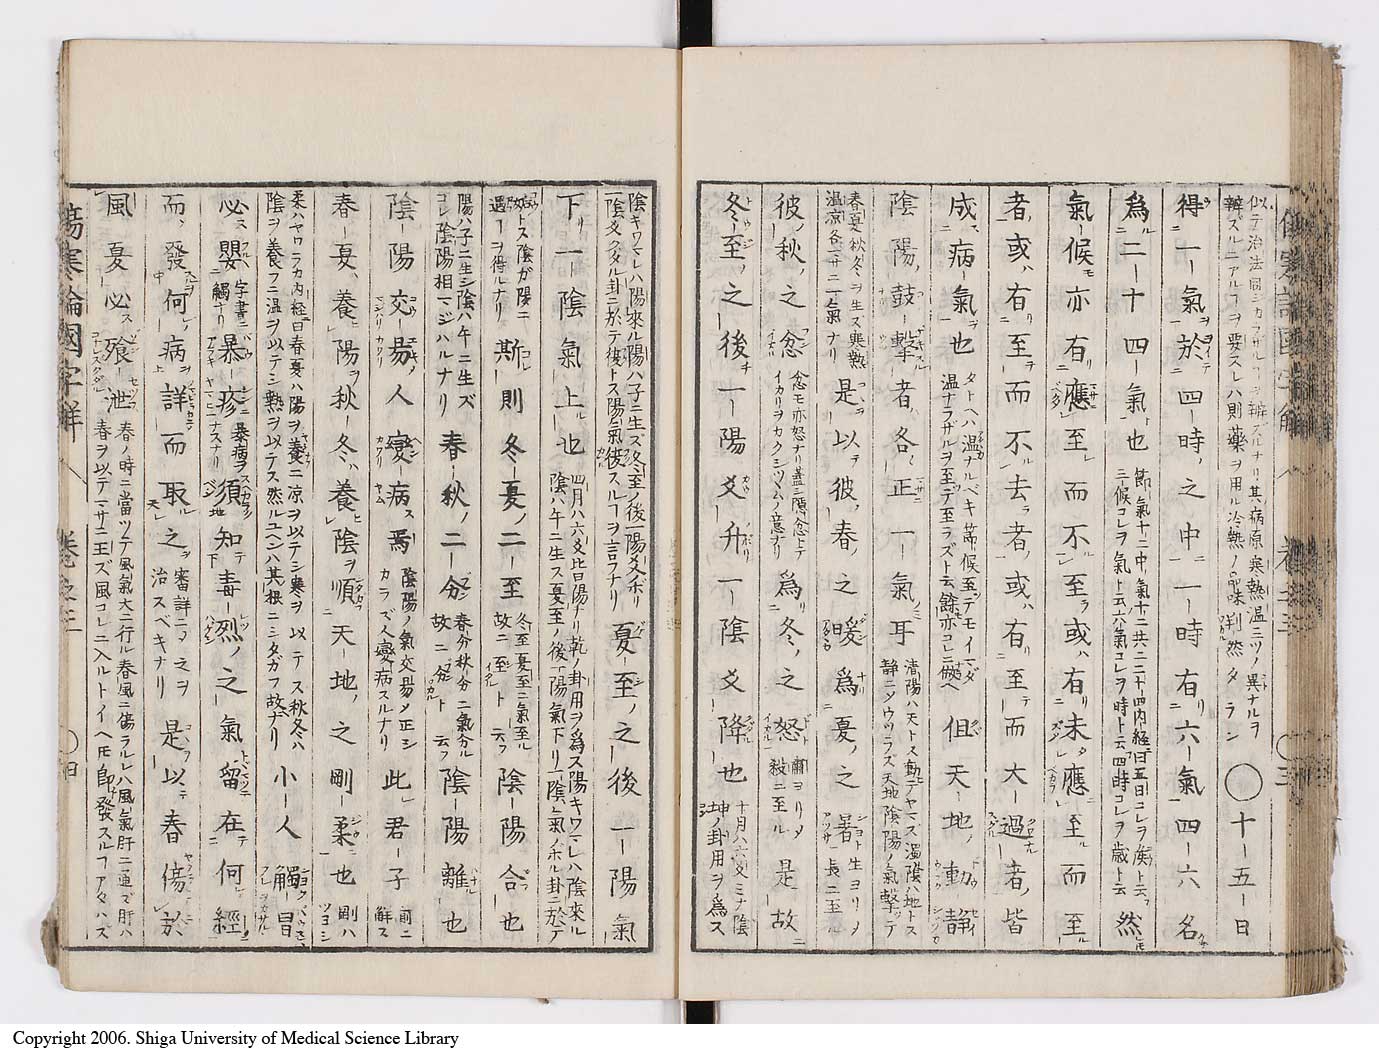 似テ治法同シカラザルヿヲ辨ズルナリ其病原寒熱温三ツノ異ナルヲ
辨ズルニアルヿヲ要スレハ則藥ヲ用ル冷熱ノ氣味判然タラン
○十五日
得一氣於四時之中一時有六氣四六名
爲二十四氣也
節氣十二中氣十二共ニ二十四内経曰五日コレヲ候ト云フ
三候コレヲ氣ト云六氣コレヲ時ト云四時コレヲ歳ト云
然
氣候亦有應至而不至或有未應至而至
者或有至而不去者或有至而大過者皆
成病氣也
タトヘハ温ナルベキ節候至テモイマダ
温ナラザルヲ至テ至ラズト云餘亦コレニ倣ヘ
但天地動靜
陰陽鼓擊者各正一氣耳
清陽ハ天トス動テヤマス濁陰ハ地トス
静ニノウツラズ天地陰陽ノ氣撃ツテ
春夏秋冬ヲ生ズ寒熱
温凉各一サニ一氣ナリ
是以彼春之暖爲夏之暑
生ヨリノ
長ニ至ル
彼秋之忿
忿モ亦怒ナリ蓋シ隱忿トテ
イカリヲカクシツツムノ意ナリ
爲冬之怒
肅ヨリノ
殺ニ至ル
是故
冬至之後一陽爻升一陰爻降也
十月ハ六爻ミナ陰
坤ノ卦用ヲ爲ス
陰キワマレハ陽來ル陽ハ子ニ生ズ冬至ノ後一陽爻ボリ
一陰爻クダル卦ニ於テ復トス陽氣復スルヿヲ言フナリ
夏至之後一陽氣
下一陰氣上也
四月ハ六爻比曰陽ナリ乾ノ卦用ヲ爲ス陽キワマレハ陰來ル
陰ハ午ニ生ス夏至ノ後一陽氣下リ一陰氣ノボル卦ニ於テ
姤トス陰ガ陽ニ
遇フヿヲ得ルナリ
斯則冬夏二至
冬至夏至ニ氣至ル
故ニ二至ト云フ
陰陽合也
陽ハ子ニ生シ陰ハ午ニ生ズ
コレ陰陽相マジハルナリ
春秋二分
春分秋分ニ氣分ル
故ニ二分ト云フ
陰陽離也
陰陽交易人變病焉
陰陽ノ氣交易ノ正シ
カラズ人變病スルナリ
此君子
前ニ
解ス
春夏養陽秋冬養陰順天地之剛柔也
剛ハ
ツヨシ
柔ハヤワラカ内経曰春夏ハ陽ヲ養ニ凉ヲ以テシ寒ヲ以テス秋冬ハ
陰ヲ養フニ温ヲ以テシ熱ヲ以テス然ルユヘンハ其根ニシタガフ故ナリ
小人觸冒
必嬰
字書ニ
觸ナリ
暴疹
暴病ヲ
ナスナリ
須知毒烈之氣留在何經
而發何病詳而取之
審詳ニノ之ヲ
治スベキナリ
是以春傷於
風夏必飧泄
春ノ時ニ當ツテ風氣大ニ行ル春風ニ傷ラルレハ風氣肝ニ通ズ肝ハ
春ヲ以テ一サニ王ズ風コレニ入ルトイヘ𪜈即發スルヿアタハズ
傷寒論國字解
卷之三
四